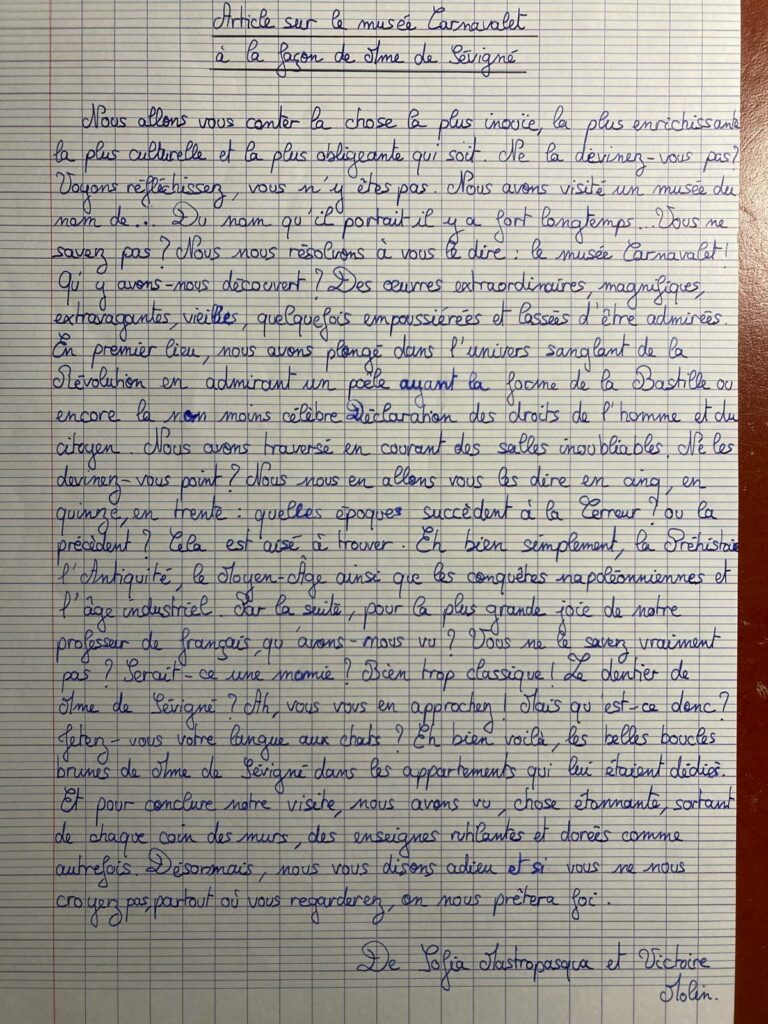 Article sur le musée Carnavalet
à la façon de Mme de Sévigné
Nous allons vous conter la chose la plus inouïe, la plus enrichissante
la plus culturelle et la plus obligeante qui soit. Ne la devinez-vous pas?
Voyons réfléchissez, vous n'y êtes pas. Nous avons visité un musée du
nom de... Du nom qu'il portait il y a fort longtemps... Vous ne
savez pas? Nous nous résolvons à vous le dire : le musée Carnavalet!
Qu'y avons-nous découvert? Des œuvres extraordinaires, magnifiques,
extravagantes, vieilles, quelquefois empoussiérées et lassées d'être admirées.
En premier lieu, nous avons plongé dans l'univers sanglant de la
Révolution en admirant un poêle ayant la forme de la Bastille ou
encore la non moins célèbre Déclaration des droits de l'homme et du
citoyen. Nous avons traversé en courant des salles inoubliables. Ne les
devinez-vous point? Nous nous en allons vous les dire en cinq, en
quinze, en trente : quelles époques succèdent à la Terreur? ou la
précèdent? Cela est aisé à trouver. Eh bien simplement, la Préhistoire
l'Antiquité, le Moyen-Âge ainsi que les conquêtes napoléonniennes et
l'âge industriel. Par la suite, pour la plus grande joie de notre
professeur de français, qu'avons-nous vu? Vous ne le savez vraiment
pas? Serait-ce une momie? Bien trop classique! Le dentier de
Mme de Sévigné? Ah, vous vous en approchez! Mais qu'est-ce donc?
Jetez-vous votre langue aux chats? Eh bien voilà, les belles boucles
brunes de Mme de Sévigné dans les appartements qui lui étaient dédiés.
Et pour conclure notre visite, nous avons vu, chose étonnante, sortant
de chaque coin des murs, des enseignes ruhlantes et dorées comme
autrefois. Désormais, nous vous disons adieu et si vous ne nous
croyez pas, partout où vous regarderez, on nous prêtera foi.
De Sofia Mastropasqua et Victoire
Molin.